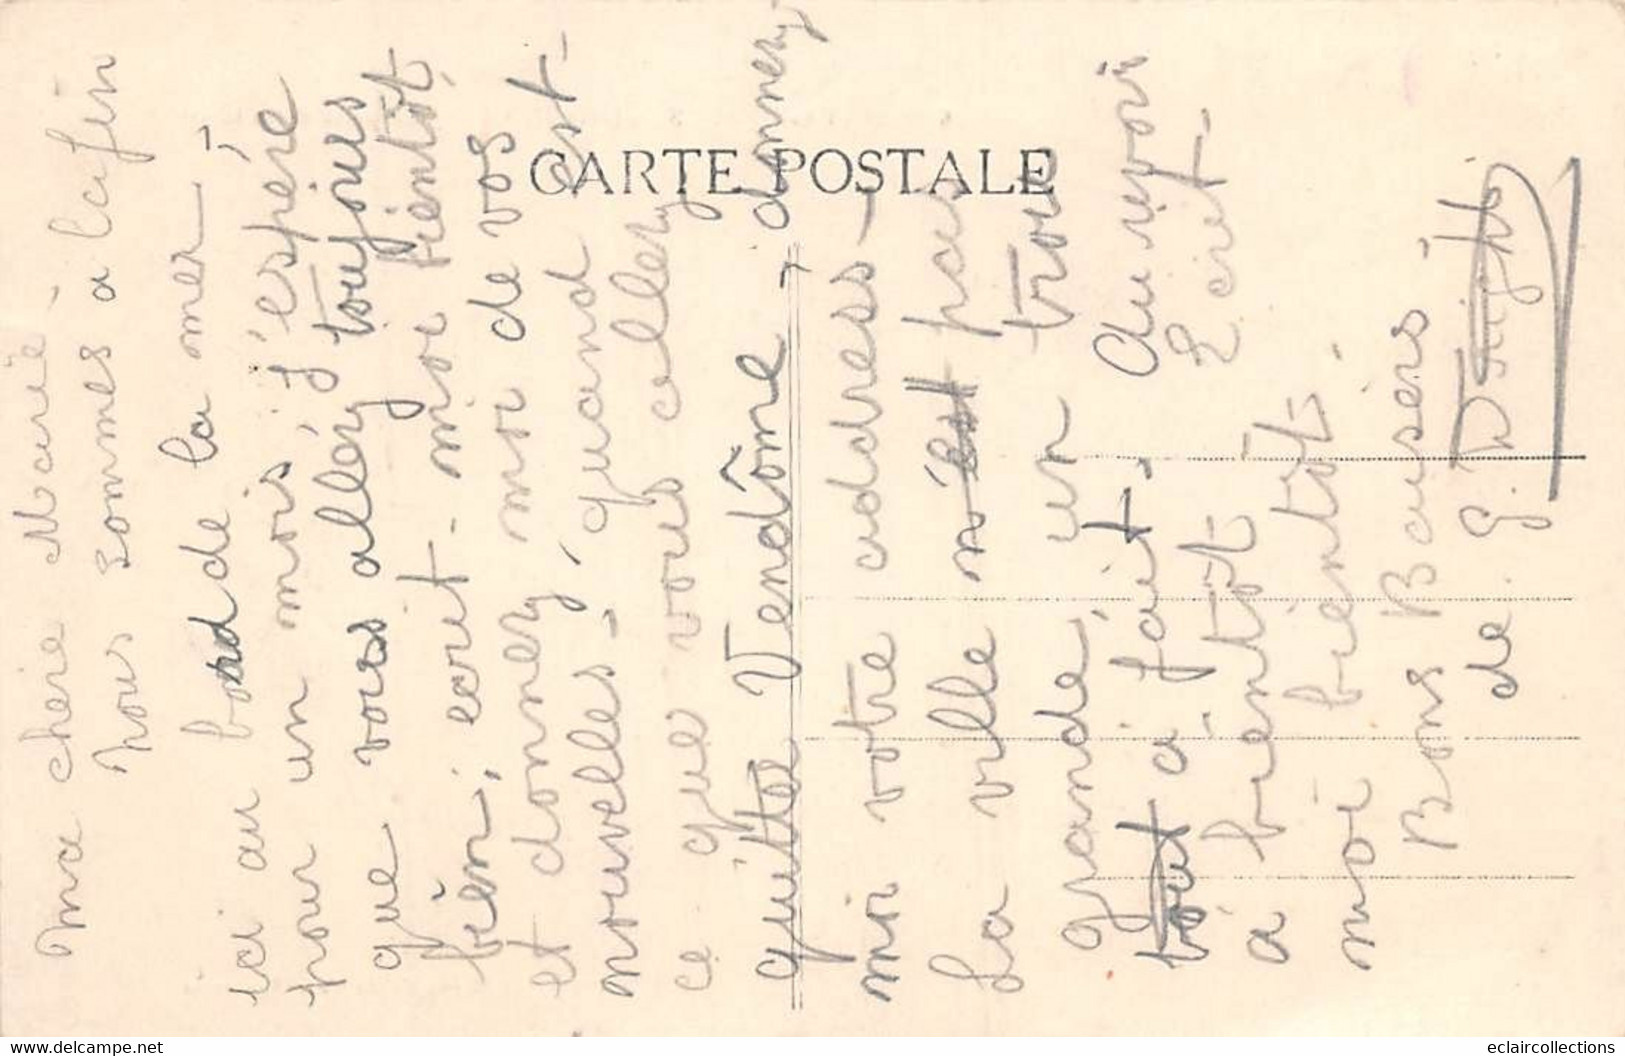 CARTE POSTALE
Ma cherie Marie -
nous sommes à la fin
ici au bord de la mer -
pour un mois, j'espére
que vous alléz toujours
bien, ecrit-moi bientôt,
et donnez moi de vos
nouvelles - quand est-
ce que vous allez
quitter Vendôme - donnez-
moi votre address -
La ville n'est pas
grande, un trou
tout a fait. Au revoir
a bientôt Ecrit-
moi bientôt.
Bons Baisers
de G. Dwight
www.delcampe.net
eclaircollections